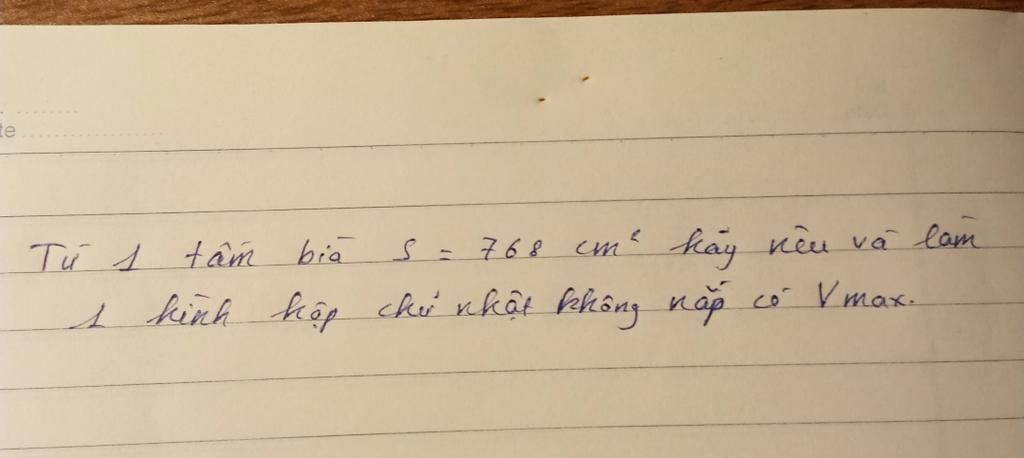 te
Từ 1 tấm bìa S = 768 cm² hãy nêu và làm
1 hình hộp chữ nhật không nắp có Vmax.